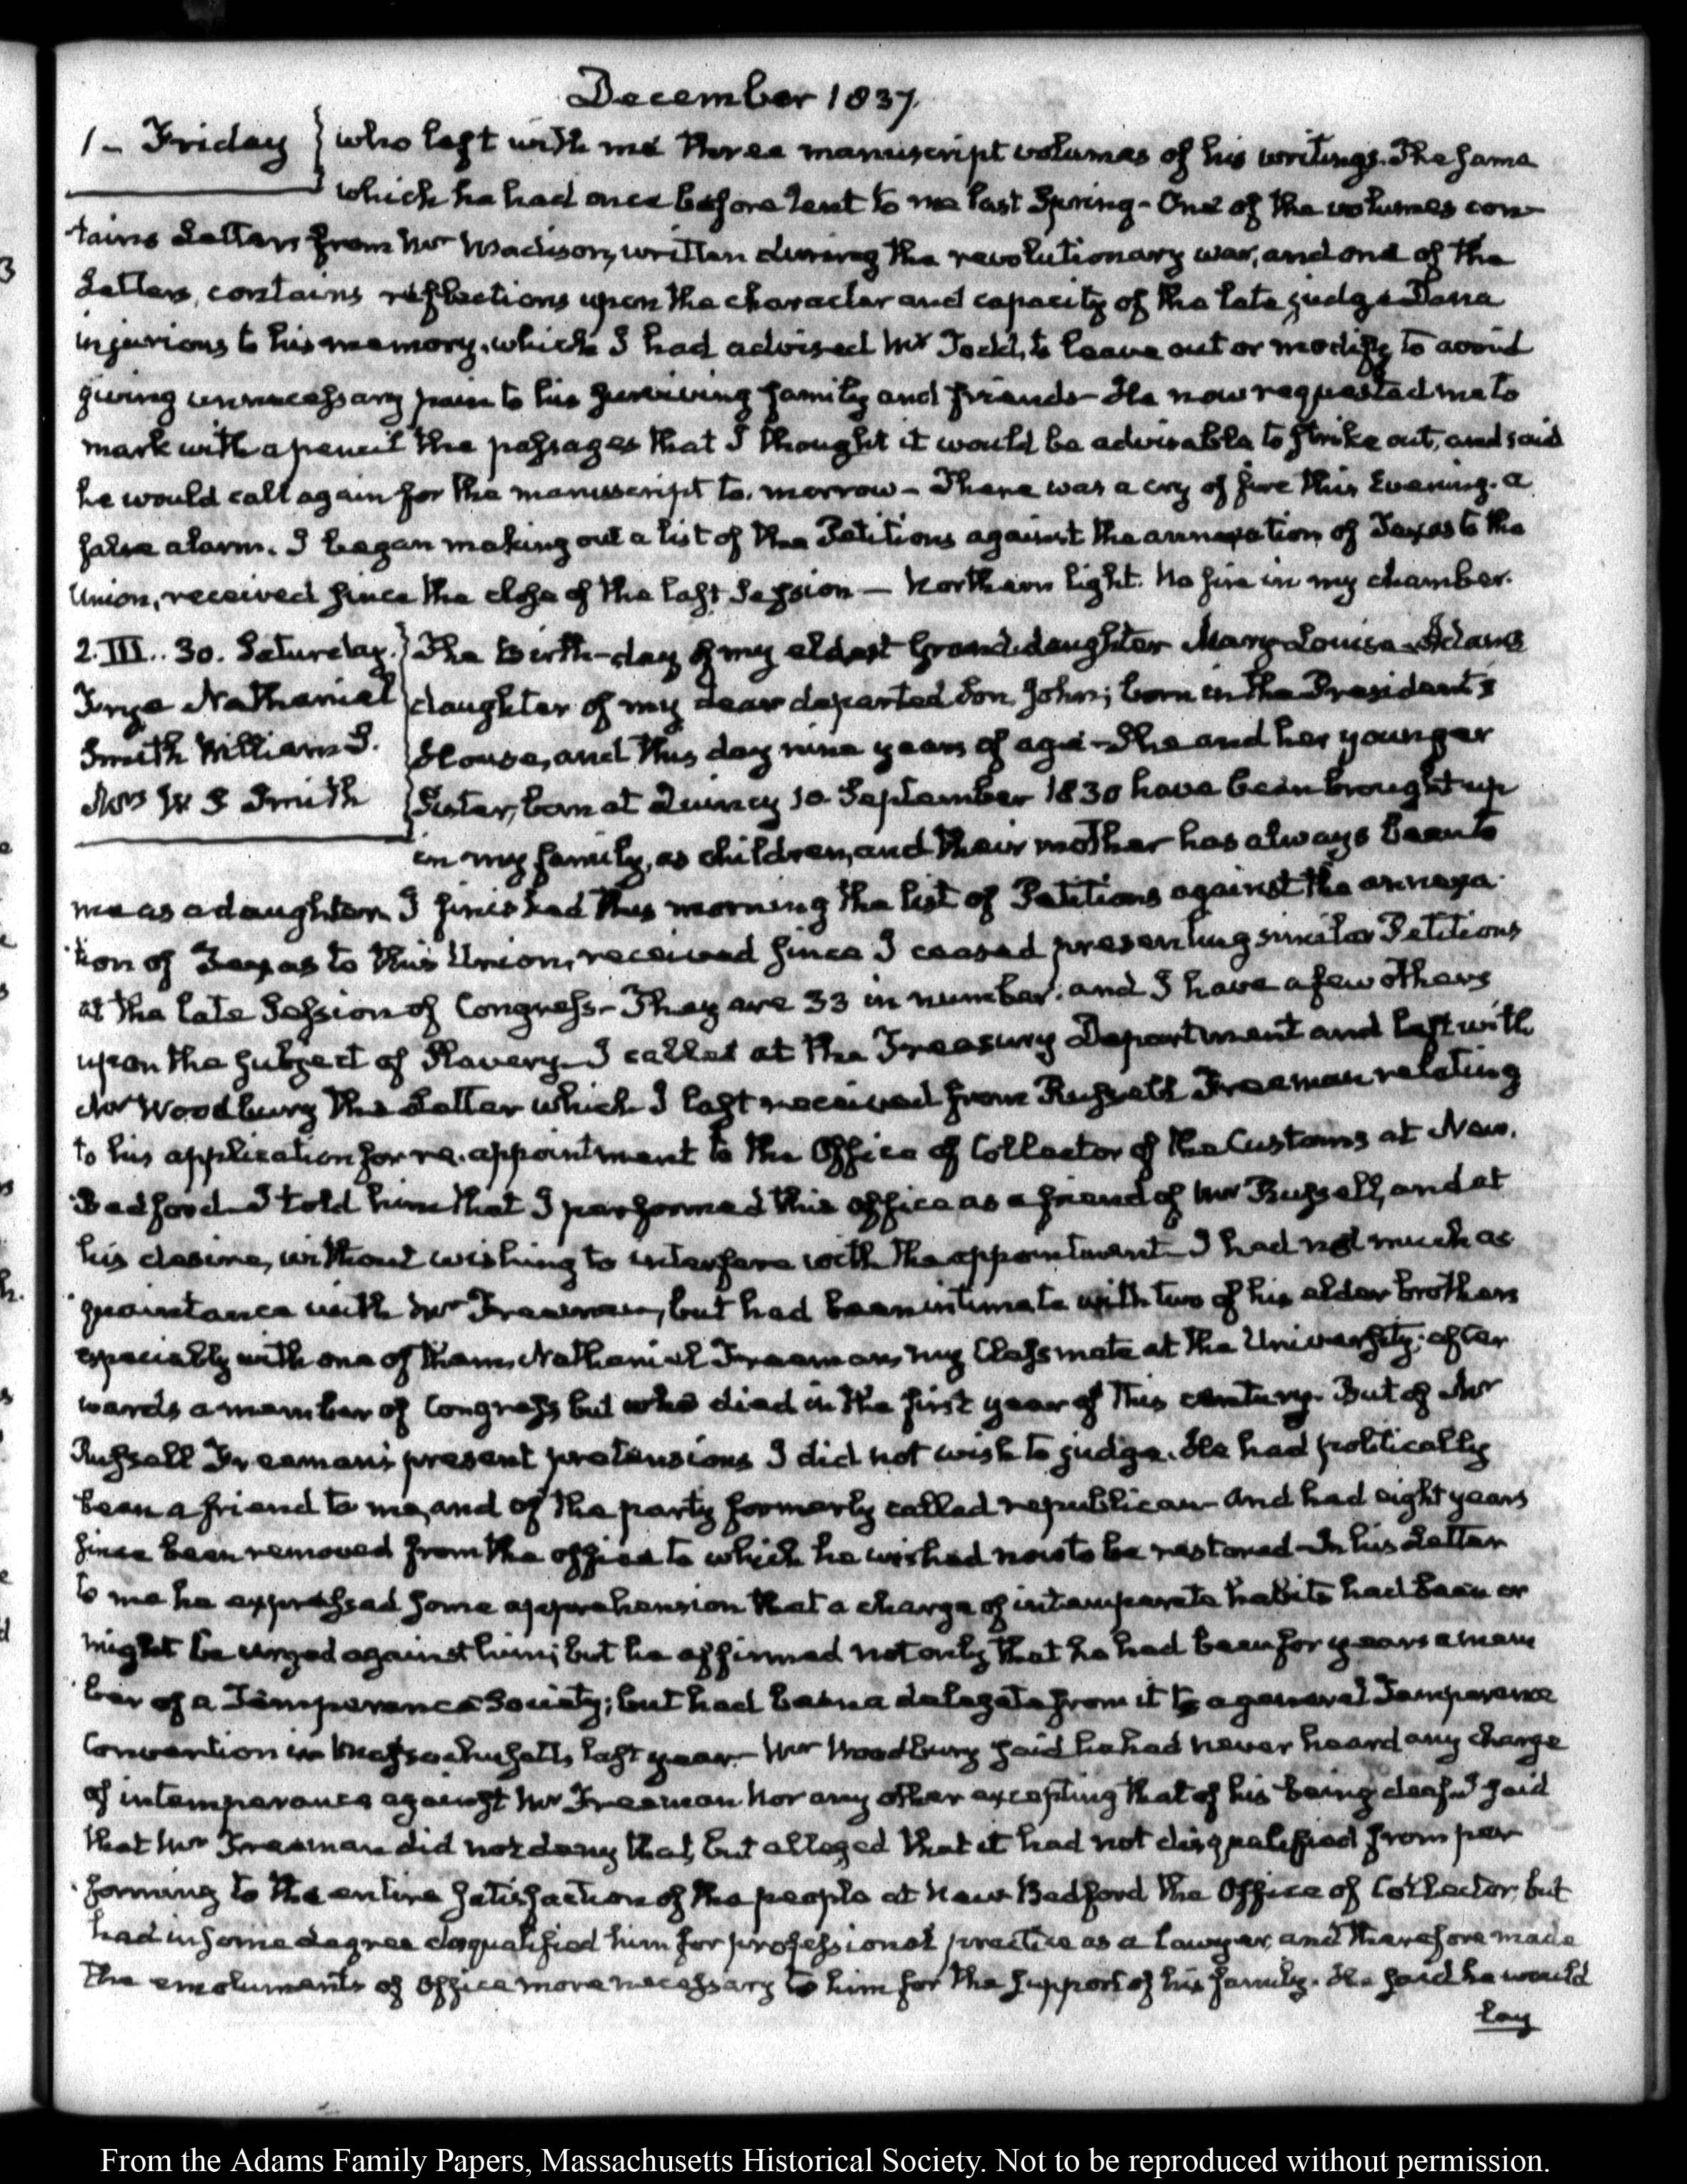 December 1837.
1 – Friday } who left with me three manuscript volumes of his writings. The same
which he had once before lent to me last Spring – One of the volumes con-
tains Letters from Mr Madison, written during the revolutionary war, and one of the
Letters, contains reflections upon the character and capacity of the late judge Dana
injurious to his memory, which I had advised Mr Todd, to leave out or modify to avoid
giving unnecessary pain to his surviving family and friends – He now requested me to
mark with a pencil the passages that I thought it would be advisable to strike out, and said
he would call again for the manuscript to-morrow – There was a cry of fire this Evening. a
false alarm. I began making out a list of the Petitions against the annexation of Texas to the
Union, received since the close of the last Session — Northern light. No fire in my chamber.
2. III.. 30. Saturday. } The Birth-day of my eldest Granddaughter Mary-Louisa Adams
Nathaniel } daughter of my dear departed Son John; born in the President's
Smith William S. } House, and this day nine years of age – She and her younger
Mrs W S Smith } Sister, born at Quincy 10 September 1830 have been brought up
in my family, as children, and their mother has always been to
me as a daughter. I finished this morning the list of Petitions against the annexa-
tion of Texas to this Union, received since I ceased presenting similar Petitions
at the late Session of Congress – They are 33 in number: and I have a few others
upon the subject of Slavery – I called at the Treasury Department and left with
Mr Woodbury the Letter which I last received from Russell Freeman relating
to his application for re-appointment to the Office of Collector of the Customs at New-
Bedford – I told him that I performed this office as a friend of Mr Russell, and at
his desire, without wishing to interfere with the appointment – I had not much ac-
quaintance with Mr Freeman, but had been intimate with two of his elder brothers
especially with one of them, Nathaniel Freeman, my Classmate at the University; after
wards a member of Congress but who died in the first year of this century. But of Mr
Russell Freeman's present pretensions I did not wish to judge. He had politically
been a friend to me, and of the party formerly called republican – and had eight years
since been removed from the office to which he wished now to be restored – In his Letter
to me he expressed some apprehension that a charge of intemperate habits had been or
might be urged against him; but he affirmed not only that he had been for years a mem
ber of a Temperance Society; but had been a delegate from it to a general Temperance
Convention in Massachusetts, last year – Mr Woodbury said he had never heard any charge
of intemperance against Mr Freeman nor any other excepting that of his being deaf – I said
that Mr Freeman did not deny that, but alleged that it had not disqualified from per
forming to the entire satisfaction of the people at New Bedford the Office of Collector, but
had in some degree disqualified him for professional practice as a lawyer, and therefore made
the emoluments of Office more necessary to him for the support of his family. He said he would
lay
From the Adams Family Papers, Massachusetts Historical Society. Not to be reproduced without permission.